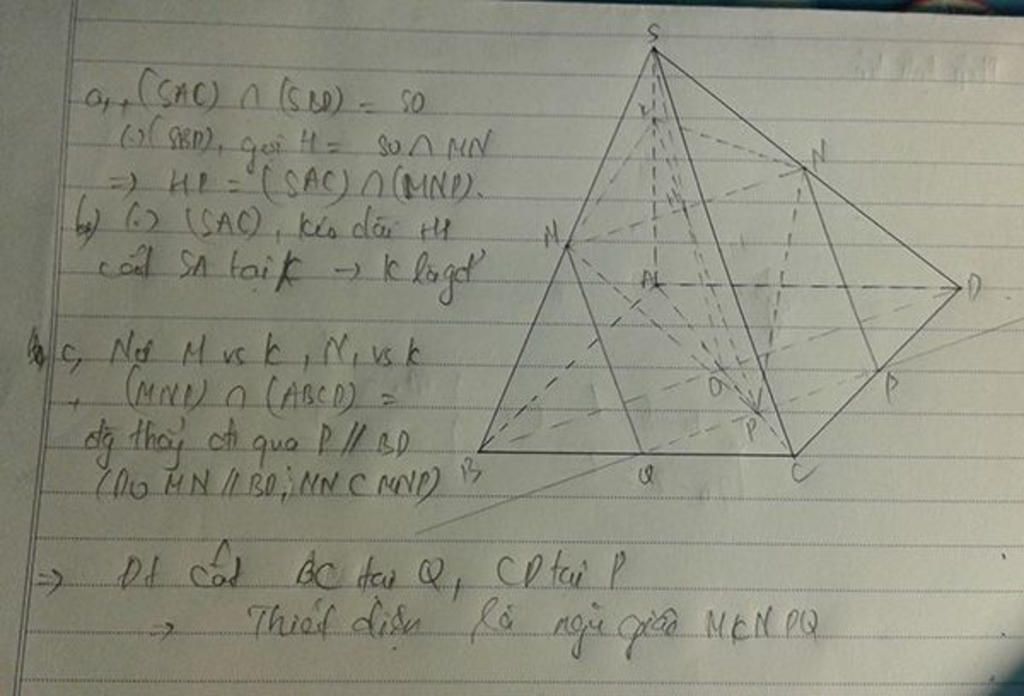 a, + (SAC) ∩ (SBD) = SO
(·) (SBD), gọi H = SO ∩ MN
=> HP = (SAC) ∩ (MNP).
b) (·) (SAC), kéo dài
cắt SA tại K → K là gđ
c, Nối M vs K, N, vs K
+ (MNP) ∩ (ABCD) =
đg thẳng đi qua P // BD
(Do MN // BD; MN ⊂ MNP)
=> Đt cắt BC tại Q, CD tại P
=> Thiết diện là ngũ giác MKNPQ
S
K
N
H
M
A
D
O
P
P
B
Q
C